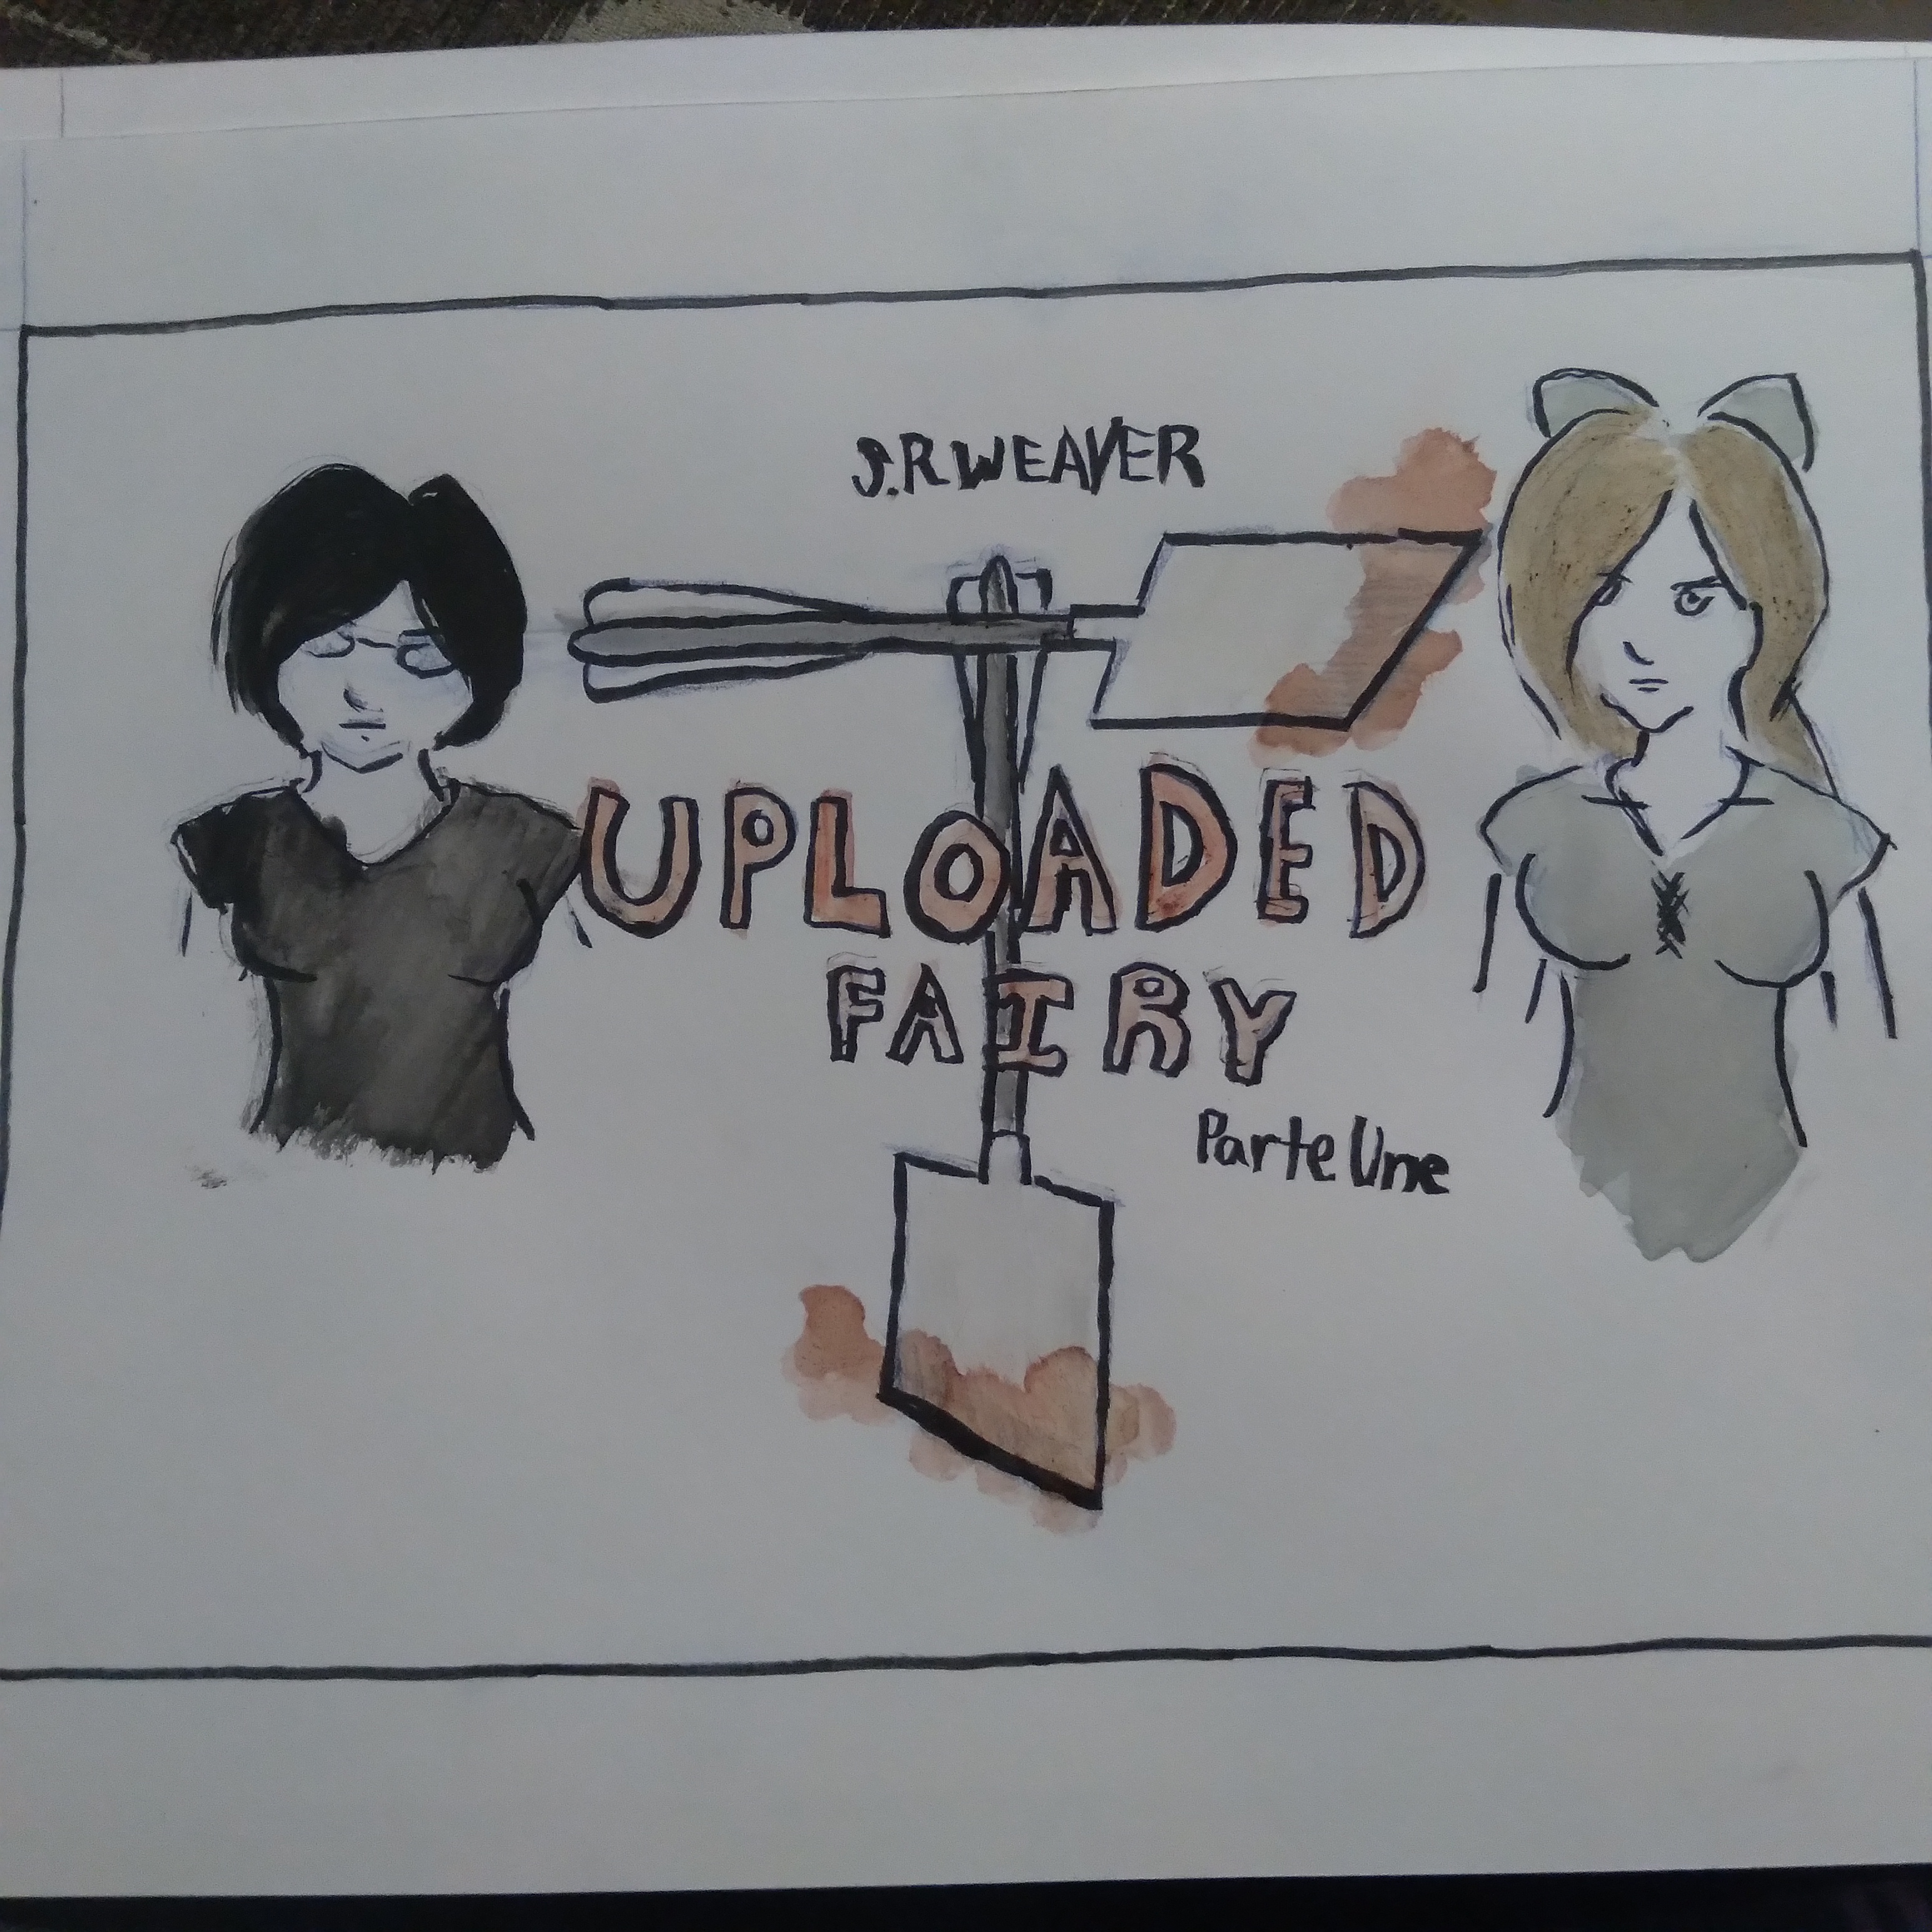 S.R WEAVER
UPLOADED
FAIRY
Parte Une